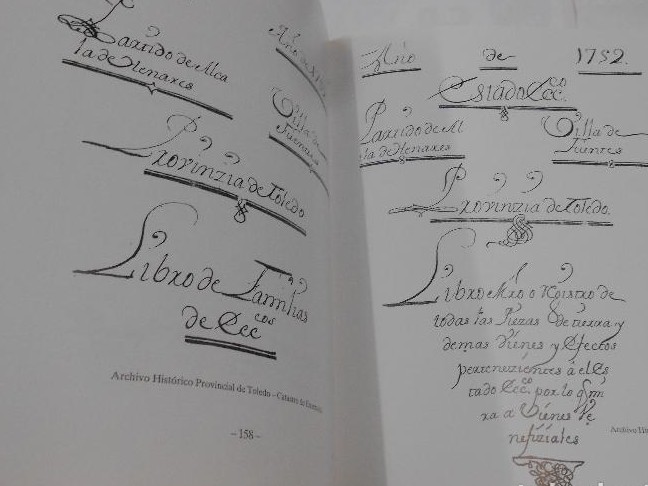 Partido de Alca
la de Henares
Año de
Villa de
Fuentes
Provinzia de Toledo
Libro de Familias
de Ecc cos
Archivo Histórico Provincial de Toledo – Catastro de
– 158 –
Año de 1752.
Estado Ecc. co
Partido de Al
la de Henares
Villa de
Fuentes
Provinzia de Toledo.
Libro Mro o Rexistro de
todas las Piezas de tierra y
demas Vienes y Efectos
pertenezientes â el Es
tado Ecc. co por lo q mi
ra a Vienes Be
nefiziales
Archivo